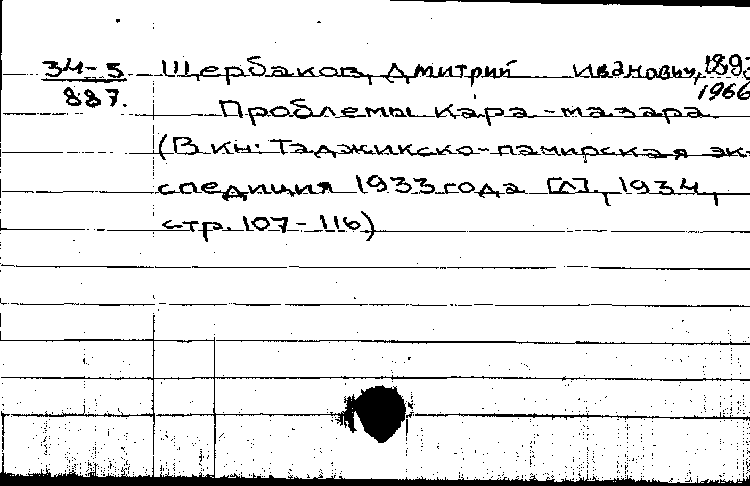 34-5 Щербаков, Дмитрий Иванович, 1893
887. 1966
Проблемы Кара-мазара.
(В кн: Таджикско-памирская эк-
спедиция 1933 года [Л]., 1934,
стр. 107-116)